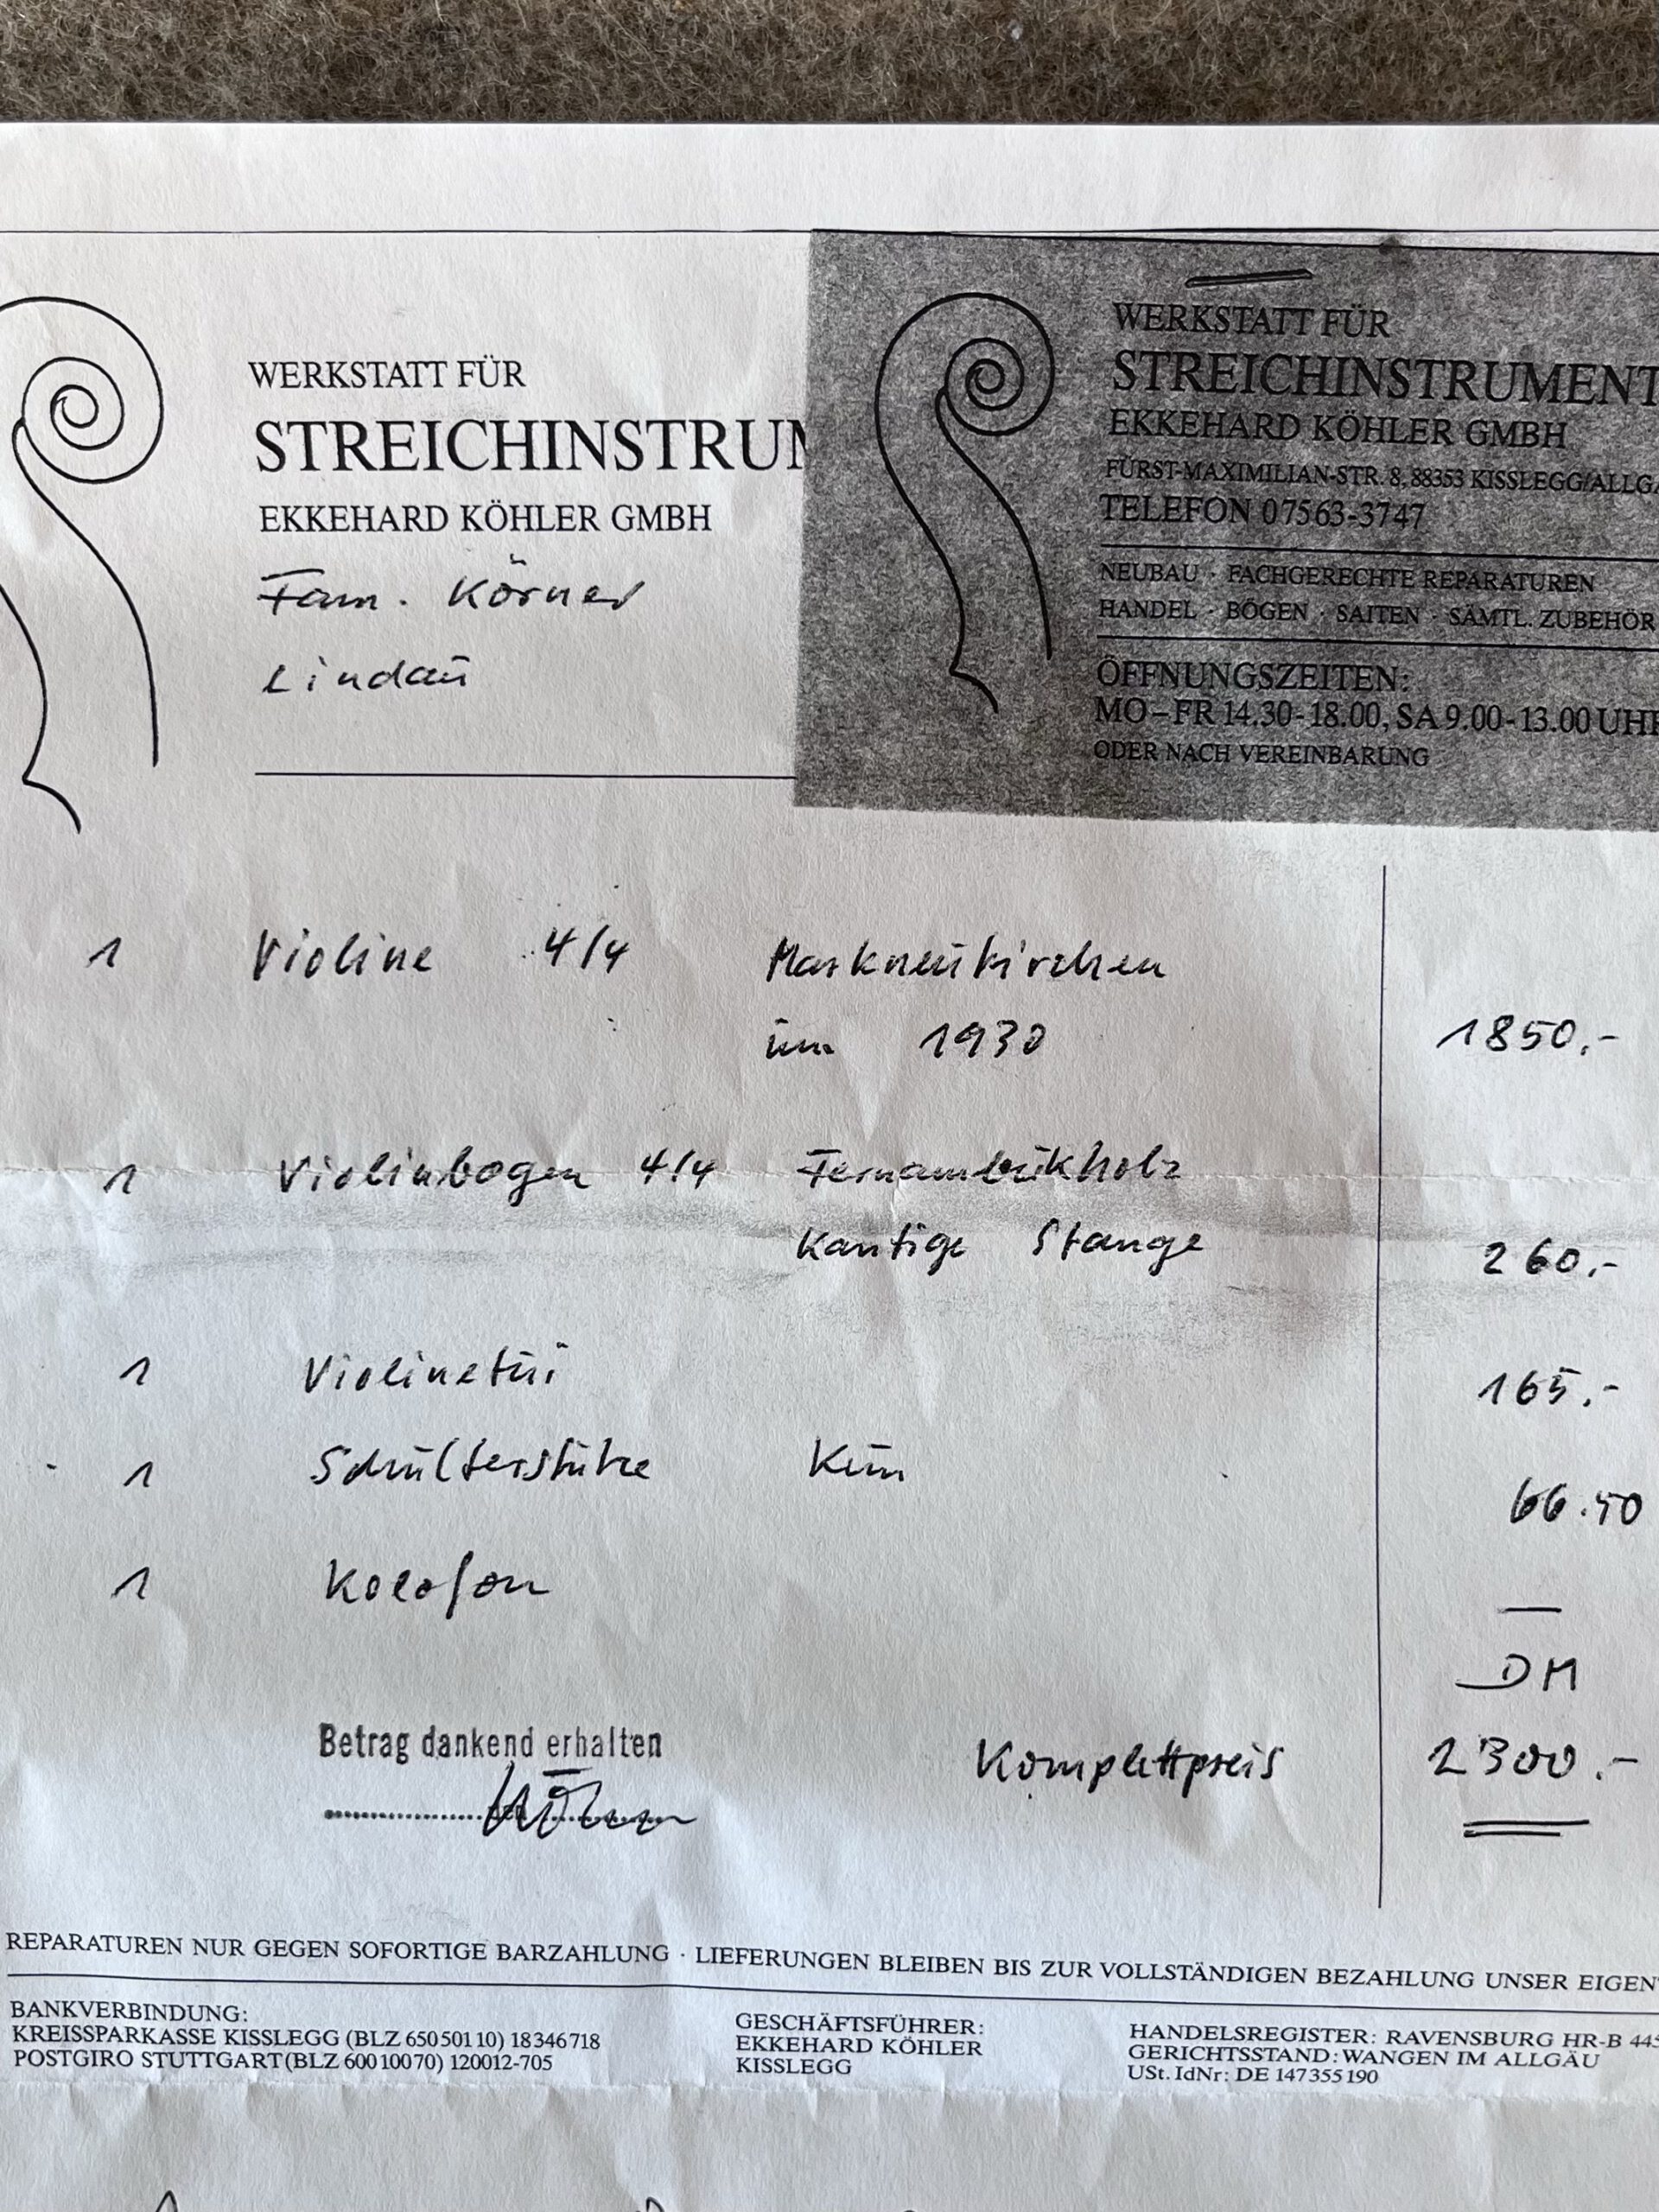 WERKSTATT FÜR
STREICHINSTRUM
EKKEHARD KÖHLER GMBH
Fam. Körner
Lindau
WERKSTATT FÜR
STREICHINSTRUMENT
EKKEHARD KÖHLER GMBH
FÜRST-MAXIMILIAN-STR. 8, 88353 KISSLEGG/ALLGÄ
TELEFON 07563-3747
NEUBAU · FACHGERECHTE REPARATUREN
HANDEL · BÖGEN · SAITEN · SÄMTL. ZUBEHÖR
ÖFFNUNGSZEITEN:
MO–FR 14.30-18.00, SA 9.00-13.00 UHR
ODER NACH VEREINBARUNG
1 Violine 4/4 Markneukirchen
um 1930 1850.-
1 Violinbogen 4/4 Fernambukholz
Kantige Stange 260.-
1 Violinetui 165.-
1 Schulterstütze Kun 66.50
1 Kolofon —
DM
Betrag dankend erhalten
Komplettpreis 2300.-
REPARATUREN NUR GEGEN SOFORTIGE BARZAHLUNG · LIEFERUNGEN BLEIBEN BIS ZUR VOLLSTÄNDIGEN BEZAHLUNG UNSER EIGEN
BANKVERBINDUNG:
KREISSPARKASSE KISSLEGG (BLZ 650 501 10) 18 346 718
POSTGIRO STUTTGART (BLZ 600 100 70) 120012-705
GESCHÄFTSFÜHRER:
EKKEHARD KÖHLER
KISSLEGG
HANDELSREGISTER: RAVENSBURG HR-B 445
GERICHTSSTAND: WANGEN IM ALLGÄU
USt. IdNr: DE 147 355 190